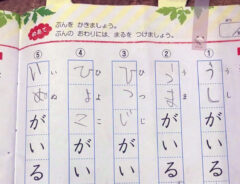 ぶんを かきましょう。
ぶんの おわりには、まるを つけましょう。
① うしがいる
② うまがいる
③ ひつじがいる
④ ひよこがいる
⑤ いぬがいる